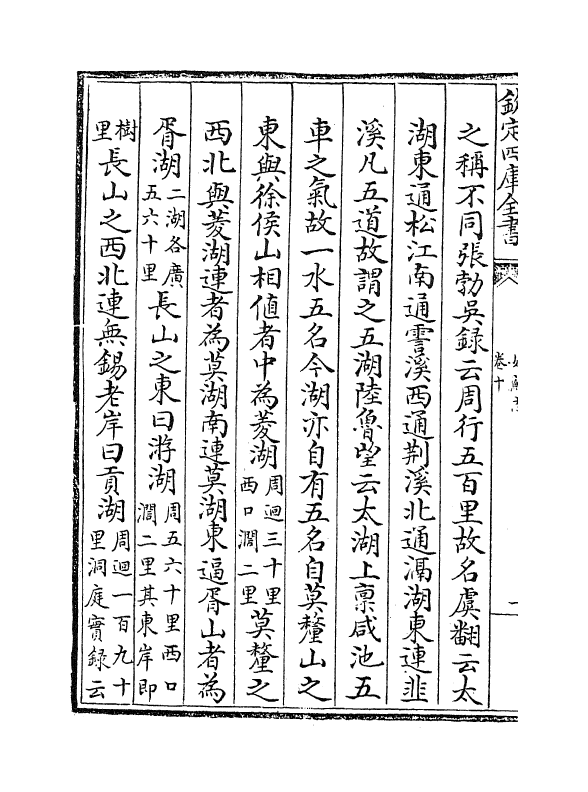 欽定四庫全書
卷十
之稱不同張勃吳錄云周行五百里故名虞翻云太
湖東通松江南通霅溪西通荆溪北通滆湖東連韭
溪凡五道故謂之五湖陸魯望云太湖上禀咸池五
車之氣故一水五名今湖亦自有五名自莫釐山之
東與徐侯山相値者中為菱湖周廻三十里西口濶二里莫釐之
西北與菱湖連者為莫湖南連莫湖東逼胥山者為
胥湖二湖各廣五六十里長山之東曰游湖周五六十里西口濶二里其東岸即
樹里長山之西北連無錫老岸曰貢湖周廻一百九十里洞庭實錄云